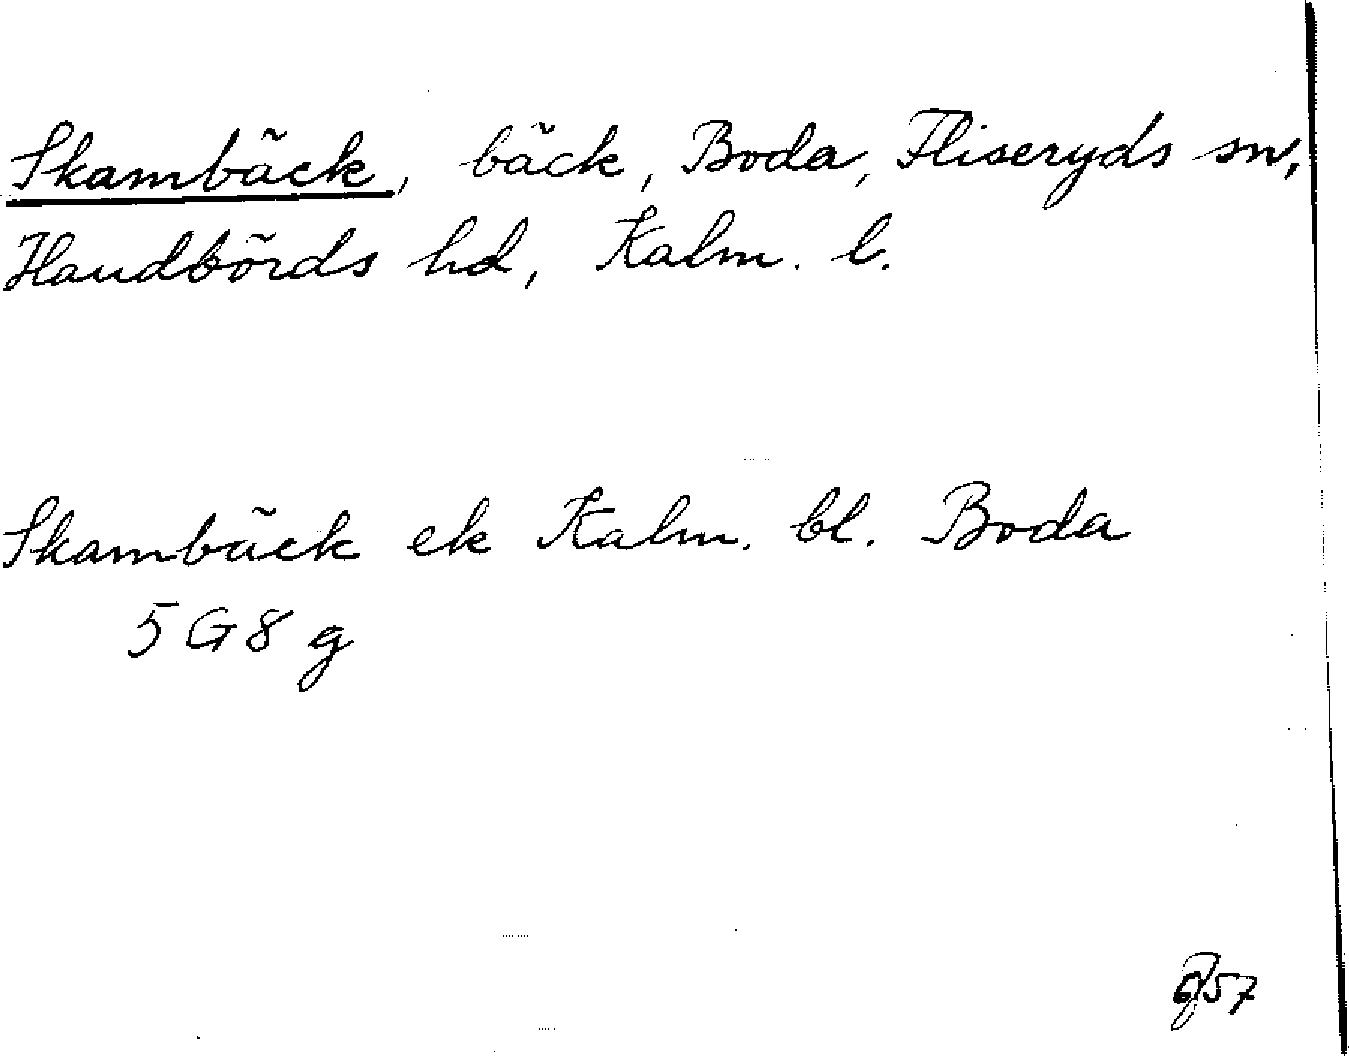 Skambäck, bäck, Boda, Fliseryds sn,
Handbörds hd, Kalm. l.
Skambäck ek Kalm. bl. Boda
5G8g
57